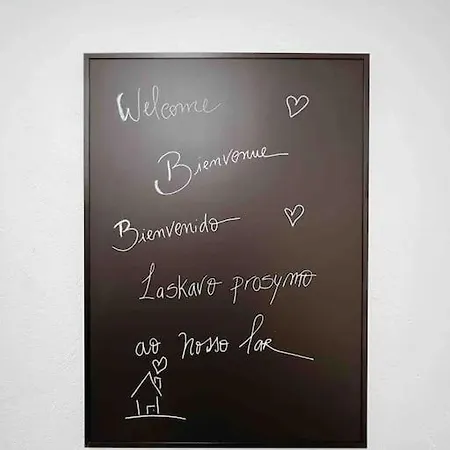 Welcome
Bienvenue
Bienvenido
Laskavo prosymo
ao nosso lar